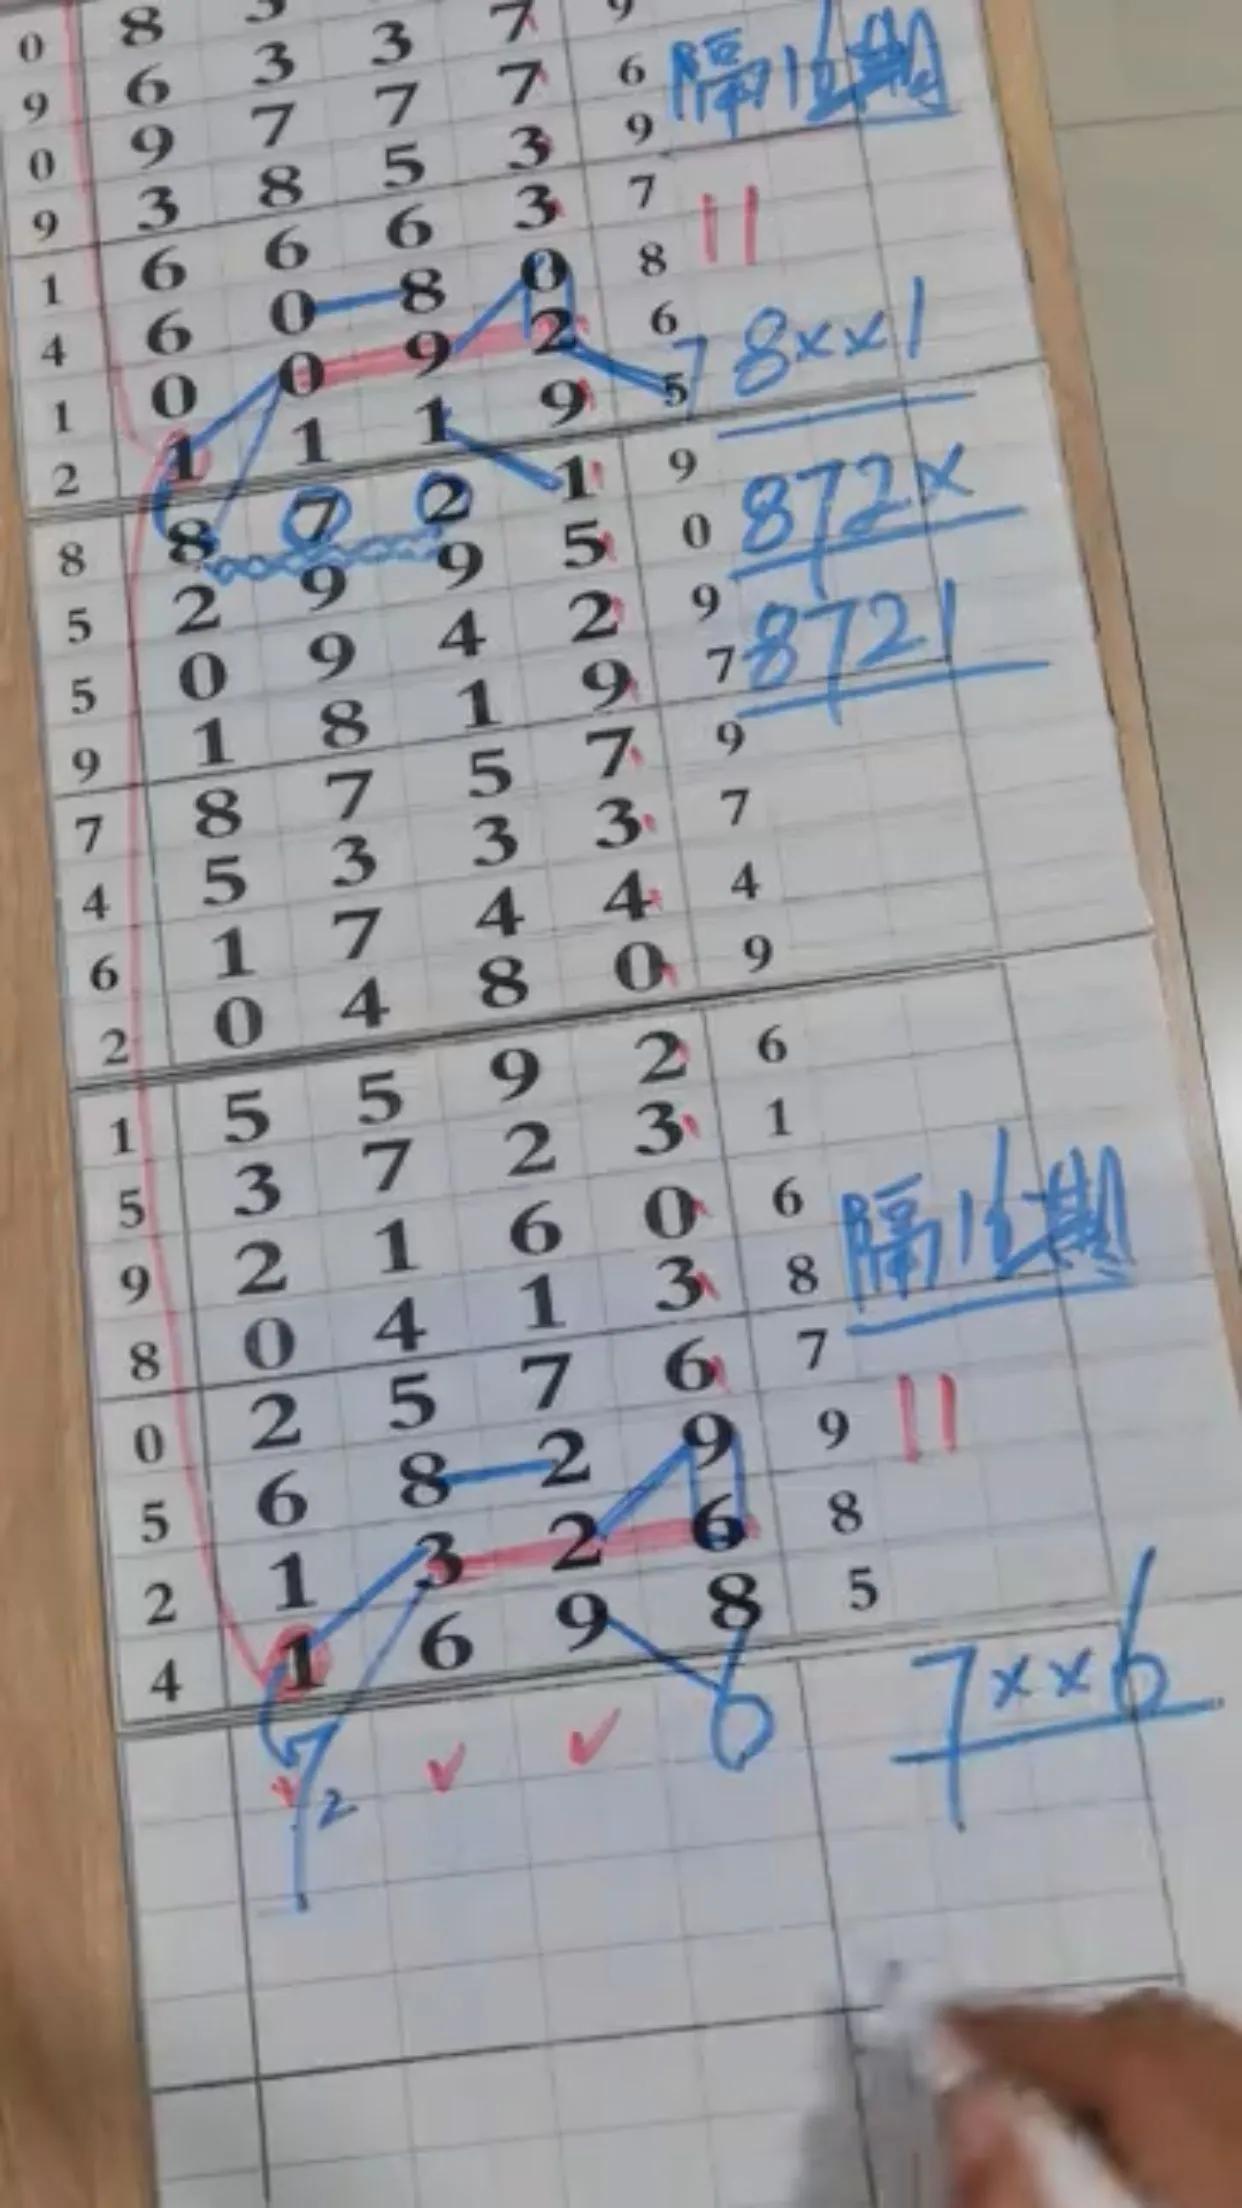 0 8 3 7 9
9 6 3 3 7 6 隔16期
0 9 7 7 7 9
9 3 8 5 3 7
1 6 6 6 3 8
4 6 0 8 0 6
1 0 0 9 2 5 7 8××1
2 1 1 1 9
8 8 7 2 1 9 872×
5 2 9 9 5 0
5 0 9 4 2 9 8721
9 1 8 1 9 7
7 8 7 5 7 9
4 5 3 3 3 7
6 1 7 4 4 4
2 0 4 8 0 9
1 5 5 9 2 6
5 3 7 2 3 1
9 2 1 6 0 6 隔16期
8 0 4 1 3 8
0 2 5 7 6 7
5 6 8 2 9 9
2 1 3 2 6 8
4 1 6 9 8 5
7 2 6 7××6